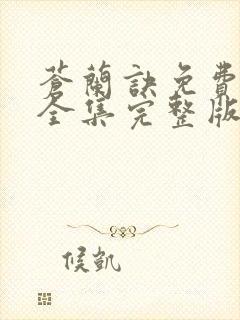 蒼蘭訣免費
全集完整版
候凱